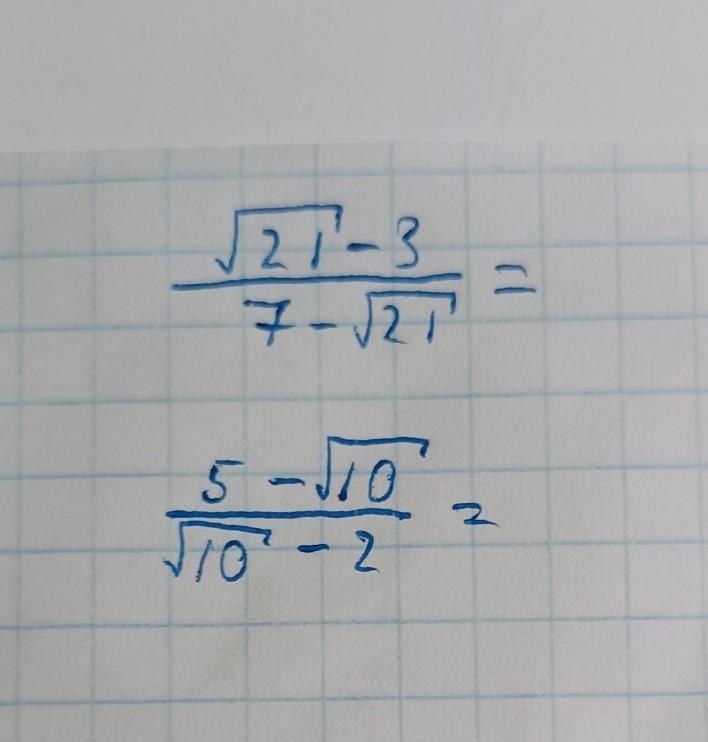 \frac{\sqrt{21}-3}{7-\sqrt{21}}=
\frac{5-\sqrt{10}}{\sqrt{10}-2}=